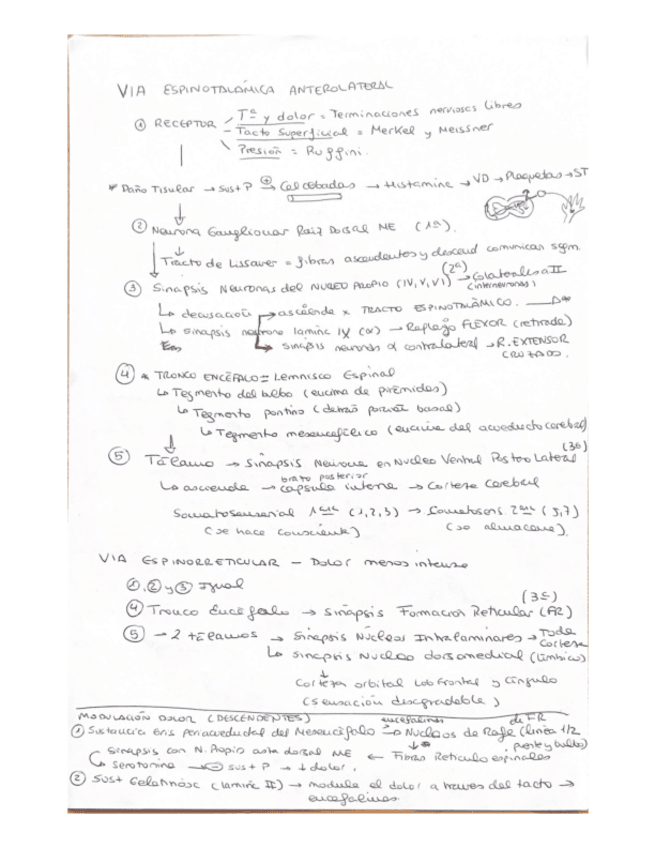 VIA ESPINOTALÁMICA ANTEROLATERAL
① RECEPTOR
Tª y dolor = Terminaciones nerviosas libres
Tacto Superficial = Merkel y Meissner
Presión = Ruffini.
* Daño Tisular → Sust P → ⊕ Cel cebadas → Histamina → VD → Plaquetas → ST
② Neurona Ganglionar Raiz Dorsal ME (1ª).
Tracto de Lissaver = fibras ascendentes y descend comunican segm.
③ Sinapsis Neuronas del NUCLEO PROPIO (IV, V, VI) (2ª) → Colaterales a II
(interneuronas)
↳ decusación → asciende x TRACTO ESPINOTALÁMICO.
↳ sinapsis neurona lamina IX (α) → Reflejo FLEXOR (retirada)
sinapsis neuronas α contralateral → R. EXTENSOR
CRUZADO.
④ * TRONCO ENCÉFALO = Lemnisco Espinal
↳ Tegmento del bulbo (encima de pirámides)
↳ Tegmento pontino (detrás porción basal)
↳ Tegmento mesencefálico (encima del acueducto cerebral)
⑤ Tálamo → Sinapsis Neurona en Nucleo Ventral Postero Lateral (3ª)
↳ asciende → brazo posterior capsula interna → Corteza Cerebral
Somatosensorial 1aria (1,2,3) → Somatosens. 2aria (5,7)
(se hace consciente) (se almacena).
VIA ESPINORRETICULAR — Dolor menos intenso
①, ② y ③ Igual
④ Tronco Encéfalo → Sinapsis Formacion Reticular (FR) (3ª)
⑤ → 2 tálamos → Sinapsis Núcleos Intralaminares → Toda
Corteza
↳ sinapsis Nucleo dorsomedial (límbico)
↓
Corteza orbital Lob Frontal y Cíngulo
(sensación desagradable)
MODULACIÓN DOLOR (DESCENDENTES)
① Sustancia Gris periacueductal del Mesencéfalo → encefalinas Nucleos de Rafe (linea 1/2
de FR
, puente y bulbo)
Sinapsis con N. Propio asta dorsal ME ← Fibras Reticulo espinales
↳ serotonina → ⊖ sust P → ↓ dolor.
② Sust Gelatinosa (lamina II) → modula el dolor a traves del tacto →
encefalinas.